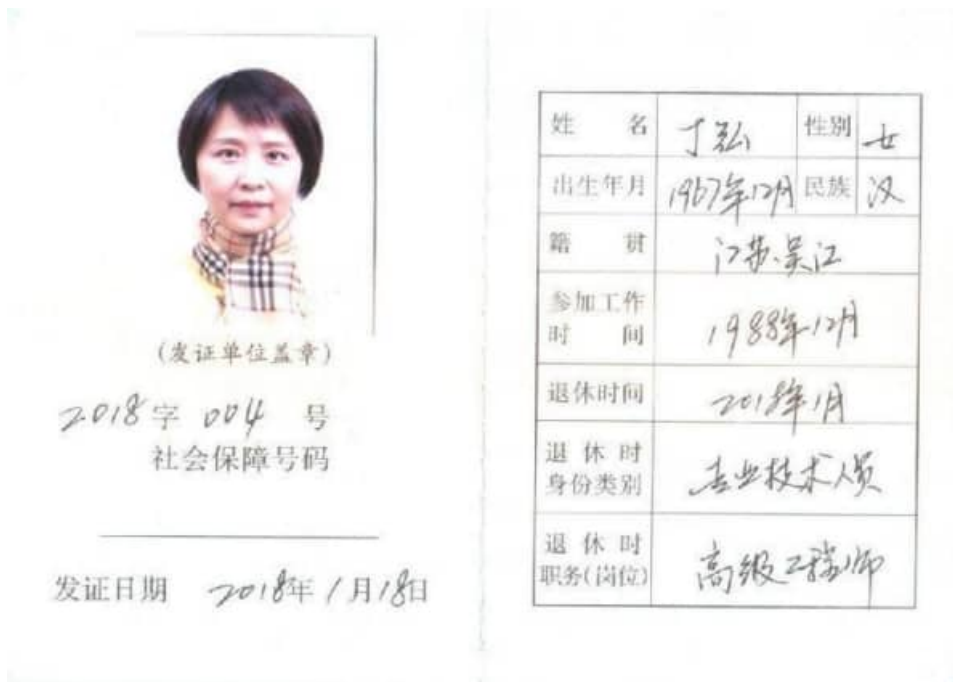 (发证单位盖章)
2018 字 004 号
社会保障号码
发证日期 2018年1月18日
姓名 丁弘 性别 女
出生年月 1967年12月 民族 汉
籍贯 江苏.吴江
参加工作时间 1988年12月
退休时间 2018年1月
退休时身份类别 专业技术人员
退休时职务(岗位) 高级工程师